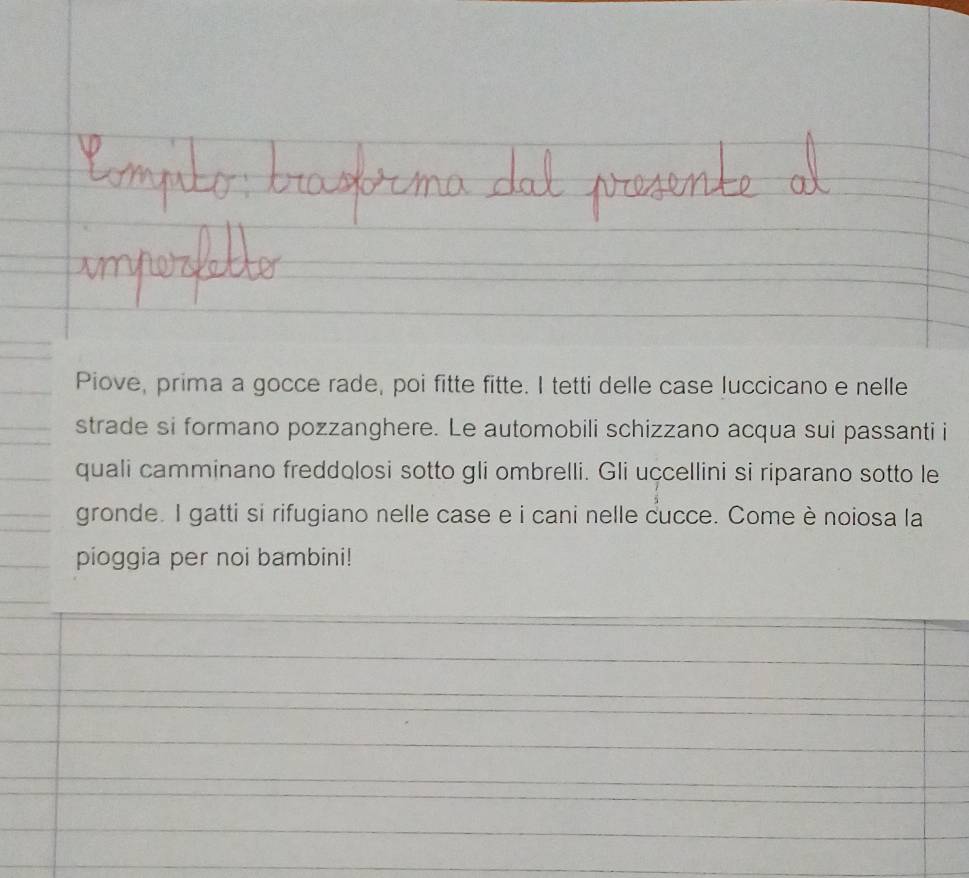 Compito: trasforma dal presente al
imperfetto
Piove, prima a gocce rade, poi fitte fitte. I tetti delle case luccicano e nelle
strade si formano pozzanghere. Le automobili schizzano acqua sui passanti i
quali camminano freddolosi sotto gli ombrelli. Gli uccellini si riparano sotto le
gronde. I gatti si rifugiano nelle case e i cani nelle cucce. Come è noiosa la
pioggia per noi bambini!